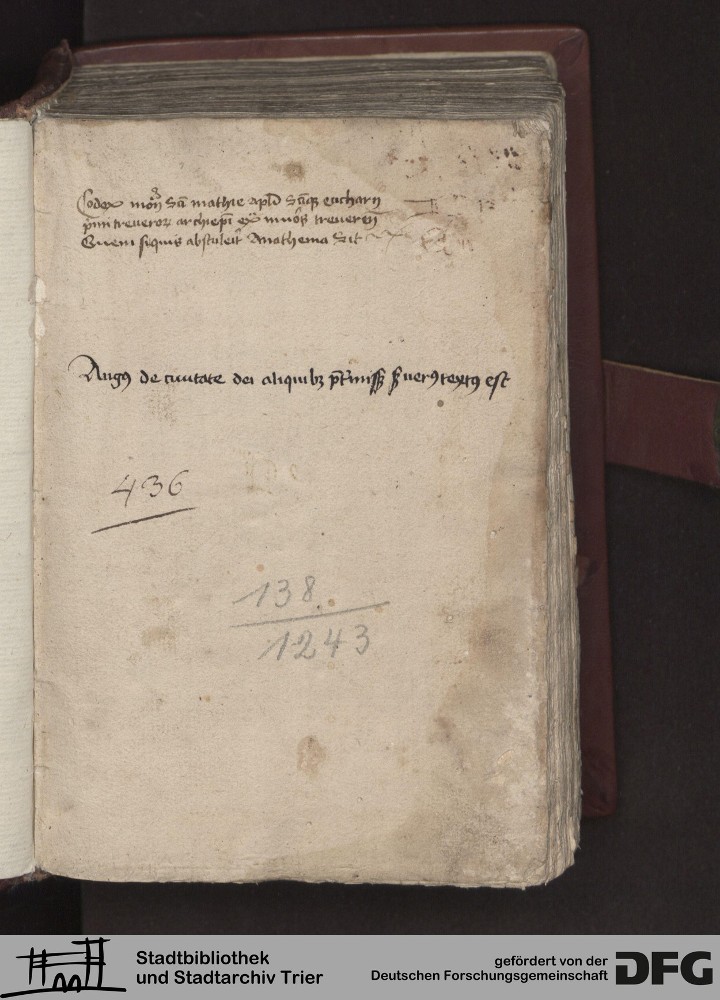 Codex mon sci mathie apli sciq eucharii
pimi treueror archiepi ex muos treueren
Quem siquis abstulerit Anathema sit
Aug9 de ciuitate dei aliquibz est
436
138
1243
Stadtbibliothek
und Stadtarchiv Trier
gefördert von der
Deutschen Forschungsgemeinschaft
DFG